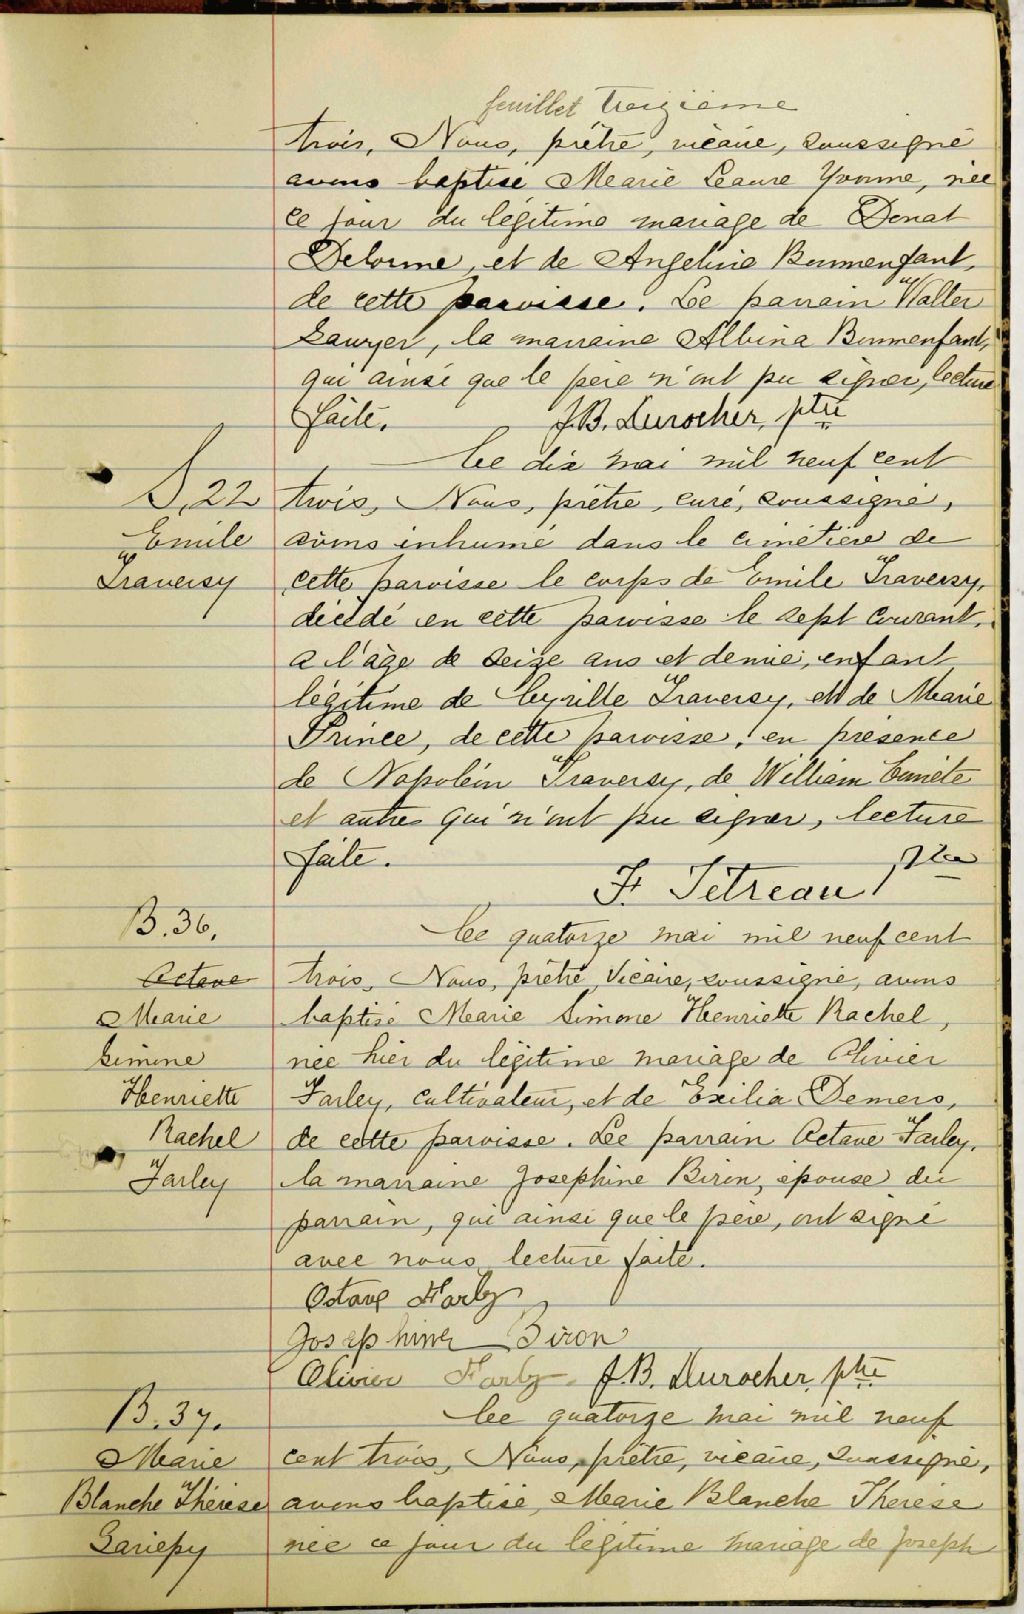 feuillet treizième
trois, Nous, prêtre, vicaire, soussigné
avons baptisé Marie Laure Yvonne, née
ce jour du légitime mariage de Donat
Delorme, et de Angelina Bonnenfant,
de cette paroisse. Le parrain Walter
Sawyer, la marraine Albina Bonnenfant,
qui ainsi que le père n'ont pu signer, lecture
faite. J.B. Durocher, ptre
Le dix mai mil neuf cent
S. 22 trois, Nous, prêtre, curé, soussigné,
Emile avons inhumé dans le cimetière de
Traversy cette paroisse le corps de Emile Traversy,
décédé en cette paroisse le sept courant,
a l'âge de seize ans et demie, enfant
légitime de Cyrille Traversy, et de Marie
Prince, de cette paroisse, en présence
de Napoléon Traversy, de William
et autres qui n'ont pu signer, lecture
faite.
F. Tétreau ptre
B. 36.
Le quatorze mai mil neuf cent
Octave trois, Nous, prêtre, Vicaire, soussigné, avons
Marie baptisé Marie Simone Henriette Rachel,
Simone née hier du légitime mariage de Olivier
Henriette Farley, cultivateur, et de Exilia Demers,
Rachel de cette paroisse. Le parrain Octave Farley,
Farley la marraine Josephine Biron, épouse du
parrain, qui ainsi que le père, ont signé
avec nous lecture faite.
Octave Farly
Josephine Biron
Olivier Farly J.B. Durocher, ptre
B. 37. Le quatorze mai mil neuf
Marie cent trois, Nous, prêtre, vicaire, soussigné,
Blanche Thérèse avons baptisé, Marie Blanche Thérèse
Gariepy née ce jour du légitime mariage de Joseph